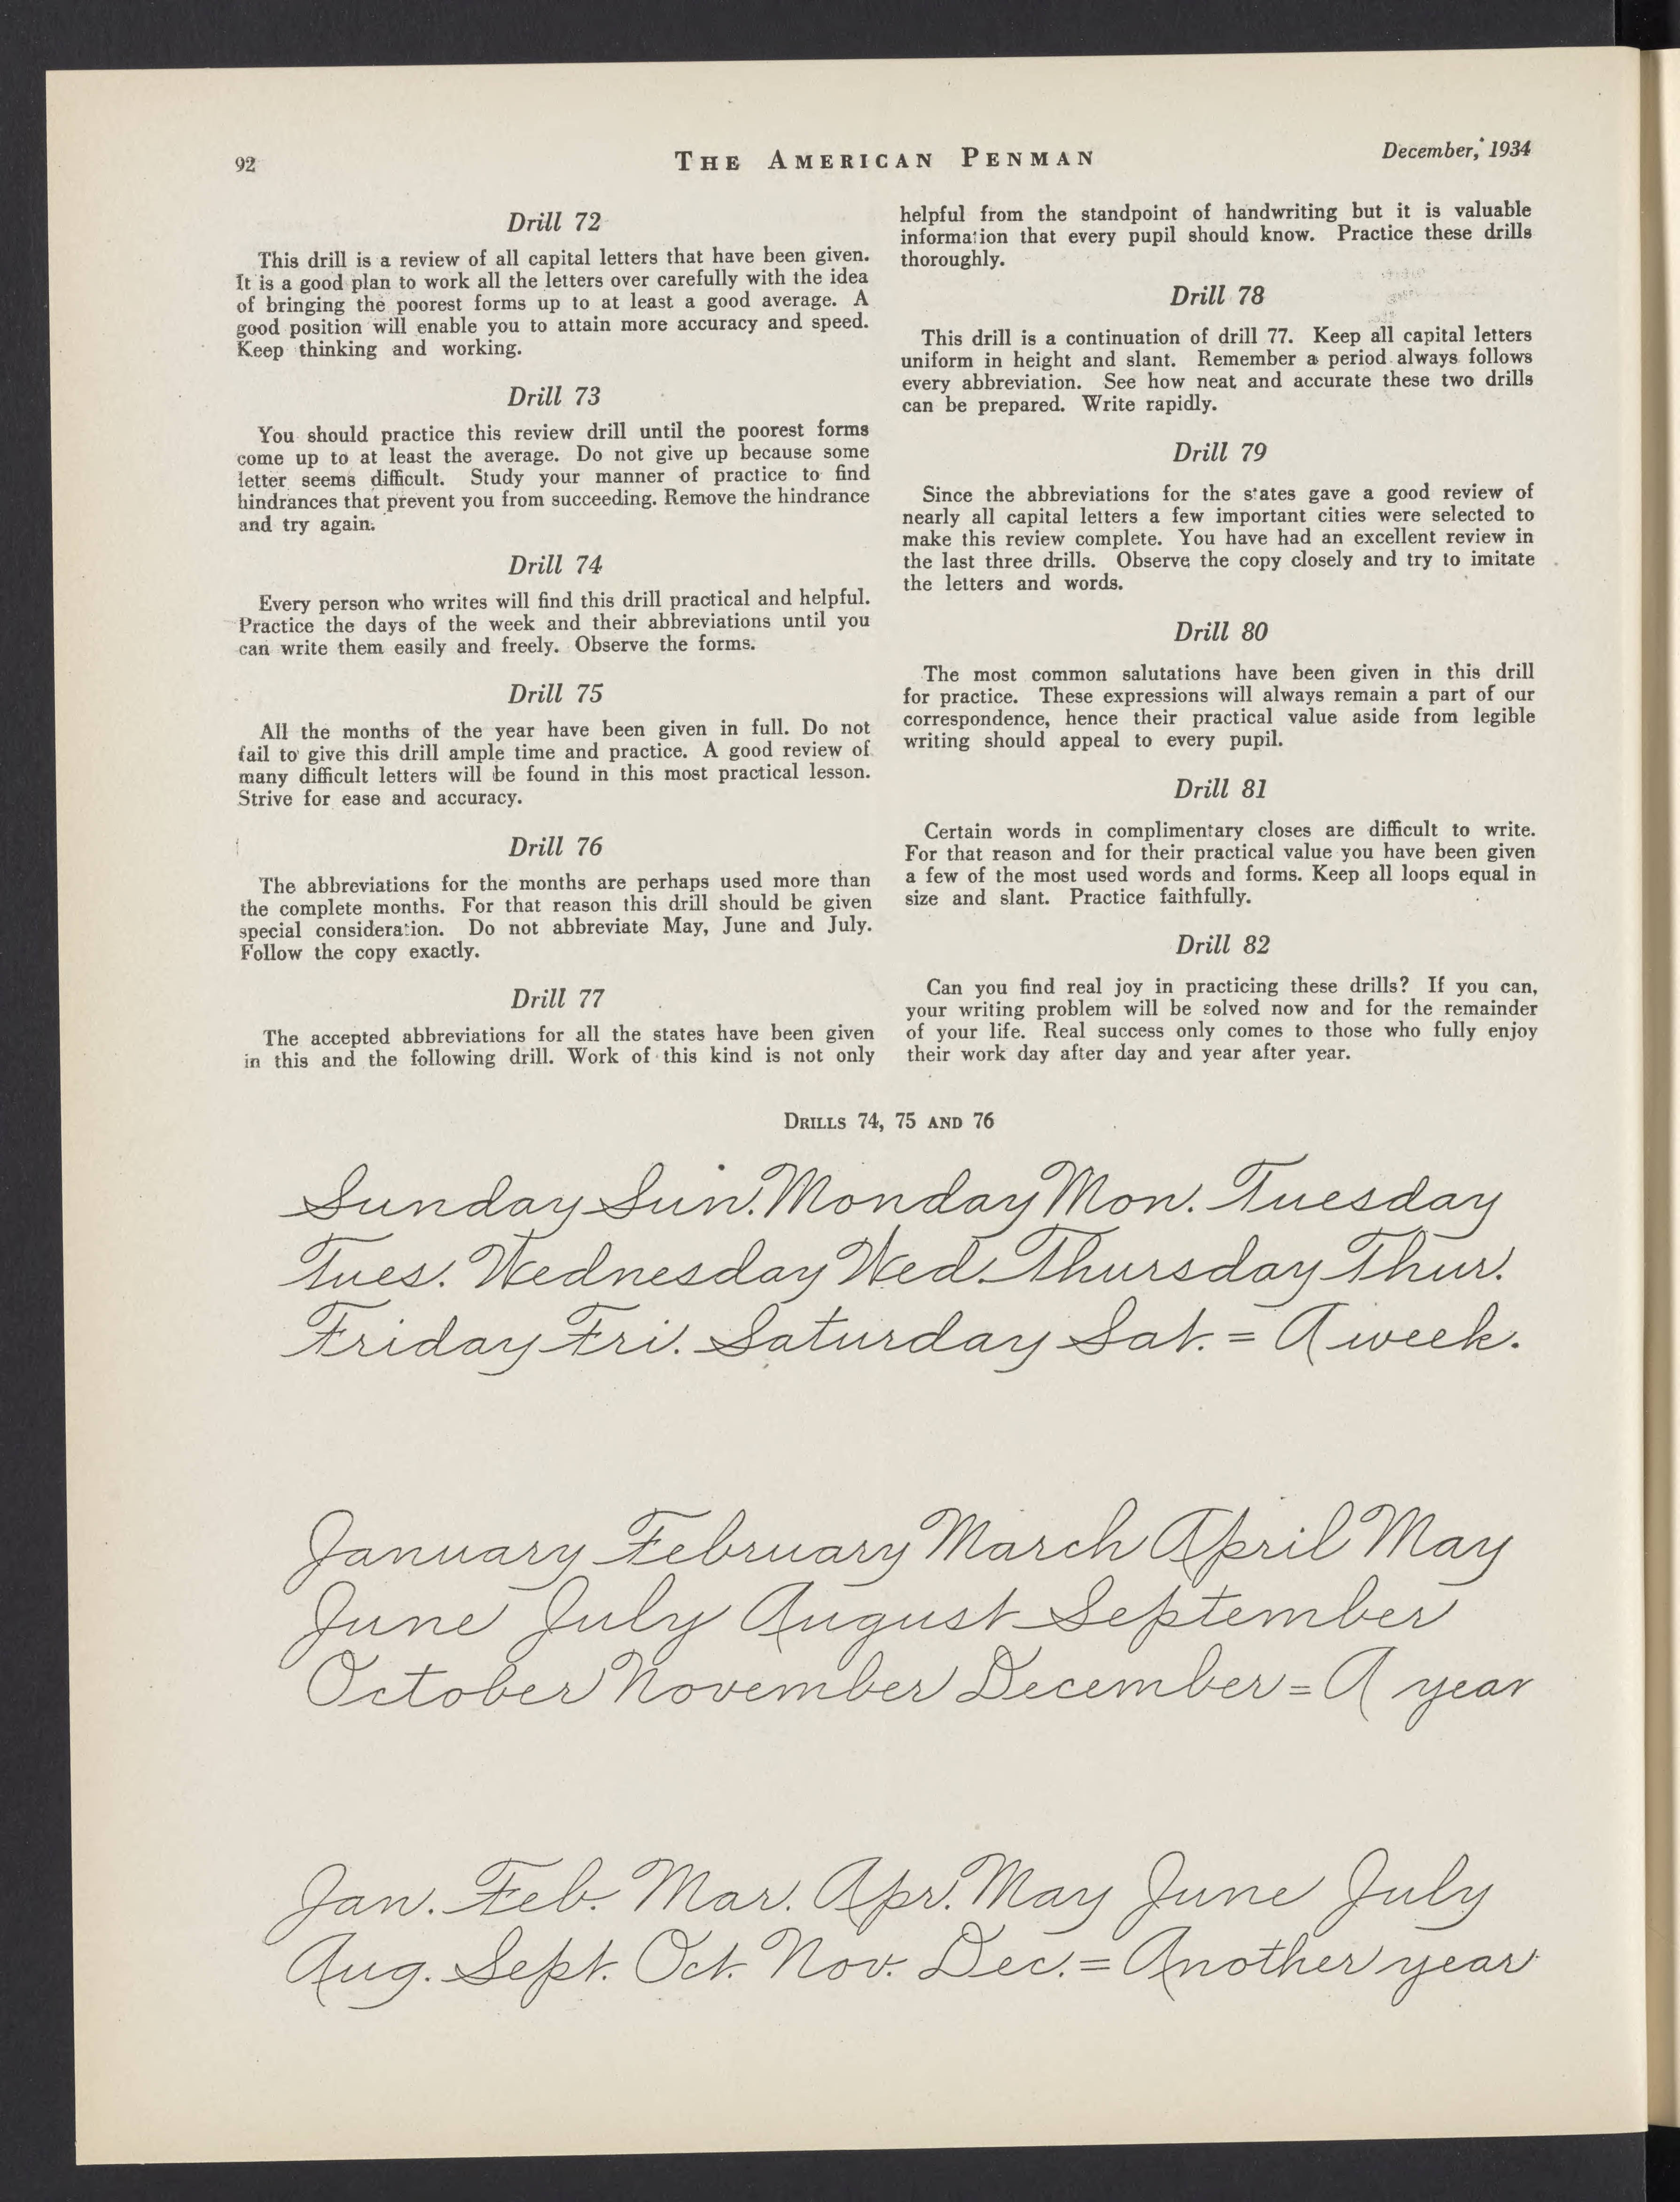 92
THE AMERICAN PENMAN
December, 1934
Drill 72
This drill is a review of all capital letters that have been given.
It is a good plan to work all the letters over carefully with the idea
of bringing the poorest forms up to at least a good average. A
good position will enable you to attain more accuracy and speed.
Keep thinking and working.
Drill 73
You should practice this review drill until the poorest forms
come up to at least the average. Do not give up because some
letter seems difficult. Study your manner of practice to find
hindrances that prevent you from succeeding. Remove the hindrance
and try again.
Drill 74
Every person who writes will find this drill practical and helpful.
Practice the days of the week and their abbreviations until you
can write them easily and freely. Observe the forms.
Drill 75
All the months of the year have been given in full. Do not
fail to give this drill ample time and practice. A good review of
many difficult letters will be found in this most practical lesson.
Strive for ease and accuracy.
Drill 76
The abbreviations for the months are perhaps used more than
the complete months. For that reason this drill should be given
special consideration. Do not abbreviate May, June and July.
Follow the copy exactly.
Drill 77
The accepted abbreviations for all the states have been given
in this and the following drill. Work of this kind is not only
helpful from the standpoint of handwriting but it is valuable
information that every pupil should know. Practice these drills
thoroughly.
Drill 78
This drill is a continuation of drill 77. Keep all capital letters
uniform in height and slant. Remember a period always follows
every abbreviation. See how neat and accurate these two drills
can be prepared. Write rapidly.
Drill 79
Since the abbreviations for the states gave a good review of
nearly all capital letters a few important cities were selected to
make this review complete. You have had an excellent review in
the last three drills. Observe the copy closely and try to imitate
the letters and words.
Drill 80
The most common salutations have been given in this drill
for practice. These expressions will always remain a part of our
correspondence, hence their practical value aside from legible
writing should appeal to every pupil.
Drill 81
Certain words in complimentary closes are difficult to write.
For that reason and for their practical value you have been given
a few of the most used words and forms. Keep all loops equal in
size and slant. Practice faithfully.
Drill 82
Can you find real joy in practicing these drills? If you can,
your writing problem will be solved now and for the remainder
of your life. Real success only comes to those who fully enjoy
their work day after day and year after year.
DRILLS 74, 75 AND 76
Sunday Sun. Monday Mon. Tuesday
Tues. Wednesday Wed. Thursday Thur.
Friday Fri. Saturday Sat. = A week.
January February March April May
June July August September
October November December = A year
Jan. Feb. Mar. Apr. May June July
Aug. Sept. Oct. Nov. Dec. = Another year